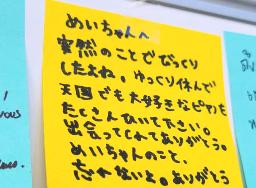 めいちゃんへ
突然のことでびっくり
したよね。ゆっくり休んで
天国でも大好きなピアノも
たくさんひいて下さい。
出会ってくれてありがとう。
めいちゃんのこと、
忘れないよ。ありがとう